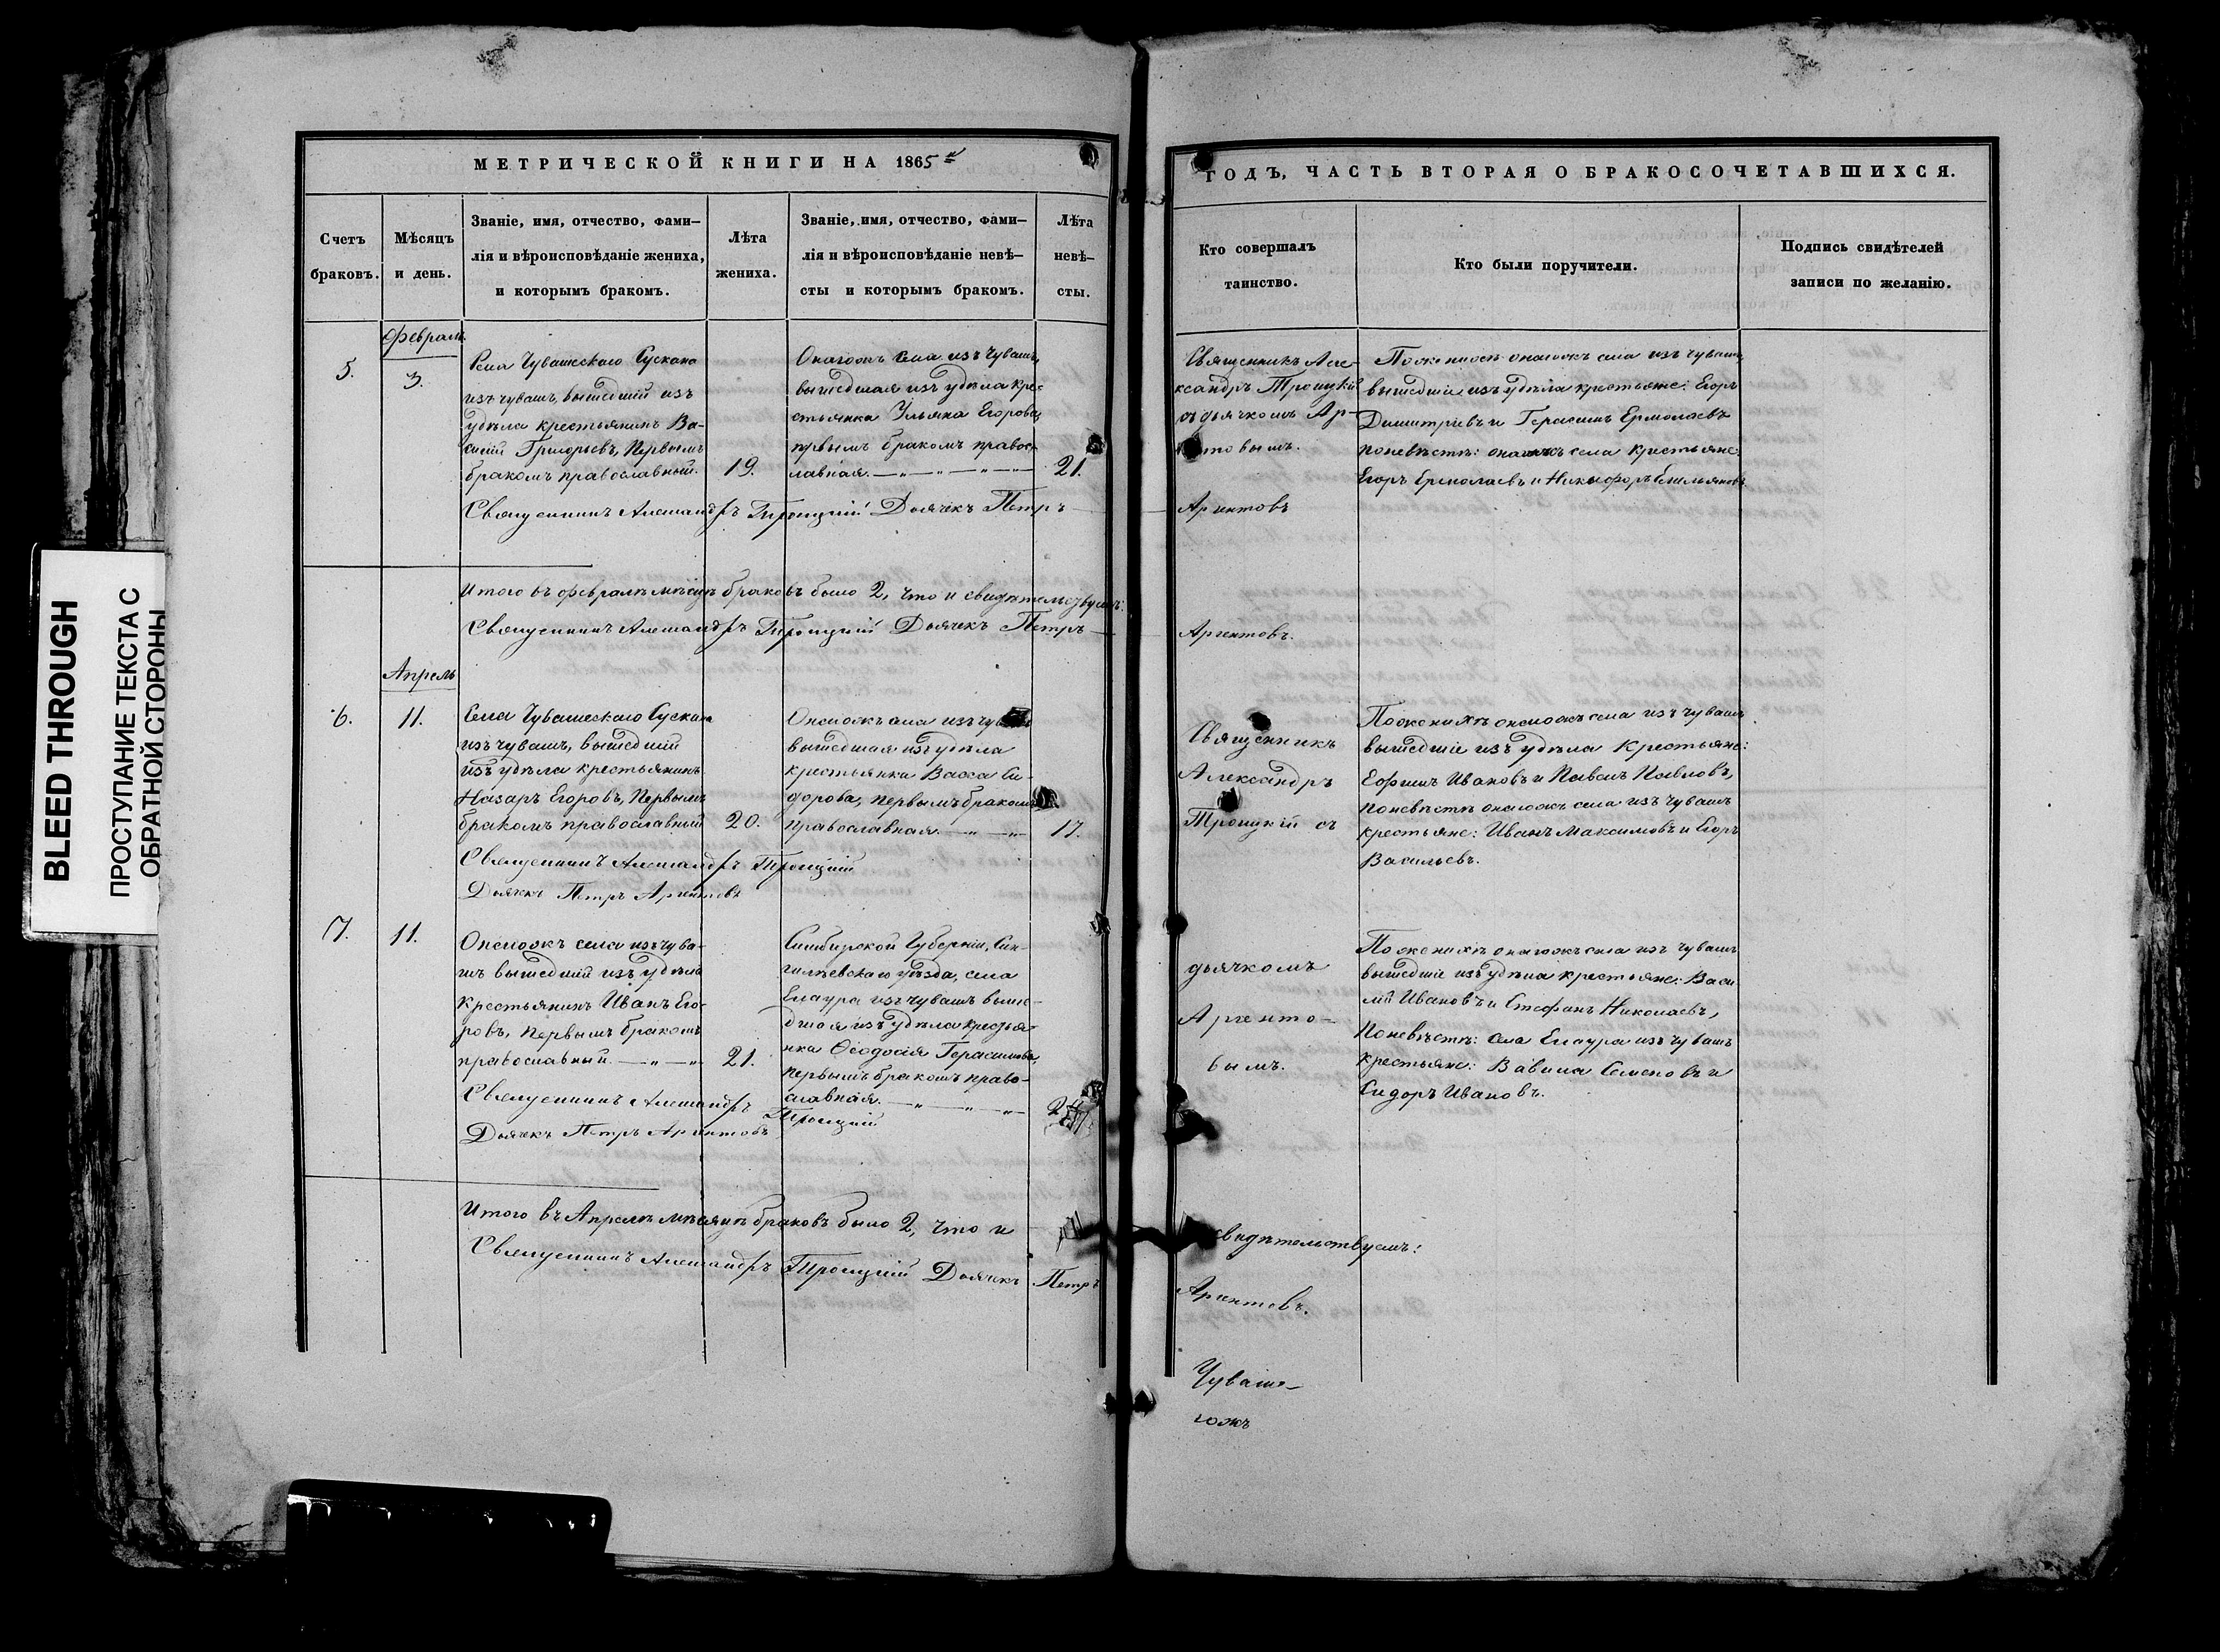 BLEED THROUGH
ПРОСТУПАНИЕ ТЕКСТА С
ОБРАТНОЙ СТОРОНЫ
МЕТРИЧЕСКОЙ КНИГИ НА 1865й
Счетъ
браковъ.
Мѣсяцъ
и день.
Званіе, имя, отчество, фами-
лія и вѣроисповѣданіе жениха,
и которымъ бракомъ.
Лѣта
жениха.
Званіе, имя, отчество, фами-
лія и вѣроисповѣданіе невѣ-
сты и которымъ бракомъ.
Лѣта
невѣ-
сты.
5.
Февраль
3.
Села Чувашскаго Сускана
изъ чувашъ, вышедшій изъ
удѣла крестьянинъ Ва-
силій Григорьевъ, Первымъ
бракомъ православный.
19.
Онагожъ села изъ чувашъ
вышедшая изъ удѣла кре-
стьянка Ульяна Егорова,
первымъ бракомъ правос-
лавная.
21.
Священникъ Александръ Троицкій Дьячекъ Петръ
Итого въ февралѣ мѣсяцѣ браковъ было 2, что и свидѣтельствуемъ:
Священникъ Александръ Троицкій Дьячекъ Петръ
6.
Апрель
11.
Села Чувашскаго Сускана
изъ чувашъ, вышедшій
изъ удѣла крестьянинъ
Назаръ Егоровъ, Первымъ
бракомъ православный
20.
Онагожъ села изъ
вышедшая изъ удѣла
крестьянка Васса Си-
дорова, первымъ бракомъ
православная.
17.
Священникъ Александръ Троицкій
Дьячекъ Петръ Аргентовъ
7.
11.
Онагожъ села изъ чува-
шъ вышедшій изъ удѣла
крестьянинъ Иванъ Его-
ровъ, первымъ бракомъ
православный
21.
Симбирской Губерніи, Син-
гилѣевскаго уѣзда, села
Елаура изъ чувашъ выше-
дшая изъ удѣла крестья-
нка Ѳеодосія Герасимова,
первымъ бракомъ право-
славная.
Священникъ Александръ Троицкій
Дьячекъ Петръ Аргентовъ
Итого въ Апрелѣ мѣсяцѣ браковъ было 2, что и
Священникъ Александръ Троицкій Дьячекъ Петръ
ГОДЪ, ЧАСТЬ ВТОРАЯ О БРАКОСОЧЕТАВШИХСЯ.
Кто совершалъ
таинство.
Кто были поручители.
Подпись свидѣтелей
записи по желанію.
Священникъ Але-
ксандръ Троицкій
съ дьячкомъ Ар-
товымъ.
По женихѣ онагожъ села изъ чувашъ
вышедшіе изъ удѣла крестьяне: Егоръ
Димитріевъ и Герасимъ Ермолаевъ
по невѣстѣ: онагожъ села крестьяне:
Егоръ Ермолаевъ и Никифоръ Емельяновъ.
Аргентовъ
Аргентовъ.
Священникъ
Александръ
Троицкій съ
По женихѣ онагожъ села изъ чувашъ
вышедшіе изъ удѣла крестьяне:
Ефимъ Ивановъ и Павелъ Павловъ,
по невѣстѣ онагожъ села изъ чувашъ
крестьяне: Иванъ Максимовъ и Егоръ
Васильевъ.
дьячкомъ
Аргенто-
вымъ.
По женихѣ онагожъ села изъ чувашъ
вышедшіе изъ удѣла крестьяне: Васи
лій Ивановъ и Стефанъ Николаевъ,
По невѣстѣ: села Елаура изъ чувашъ
крестьяне: Вавила Семеновъ и
Сидоръ Ивановъ.
свидѣтельствуемъ:
Аргентовъ.
Чуваше-
гожъ